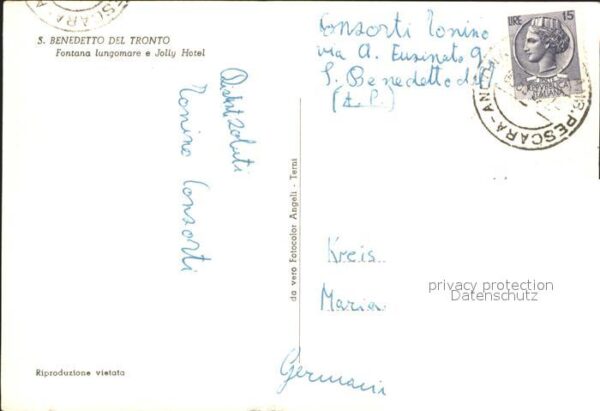 S. BENEDETTO DEL TRONTO
Fontana lungomare e Jolly Hotel
Consorti Tonino
via A. Eusinato 9
S. Benedetto del
LIRE 15
REPVBBLICA
ITALIANA
PESCARA-AN
saluti
Tonino Consorti
da vero Fotocolor Angeli - Terni
Kreis
Maria
Germani
privacy protection
Datenschutz
Riproduzione vietata